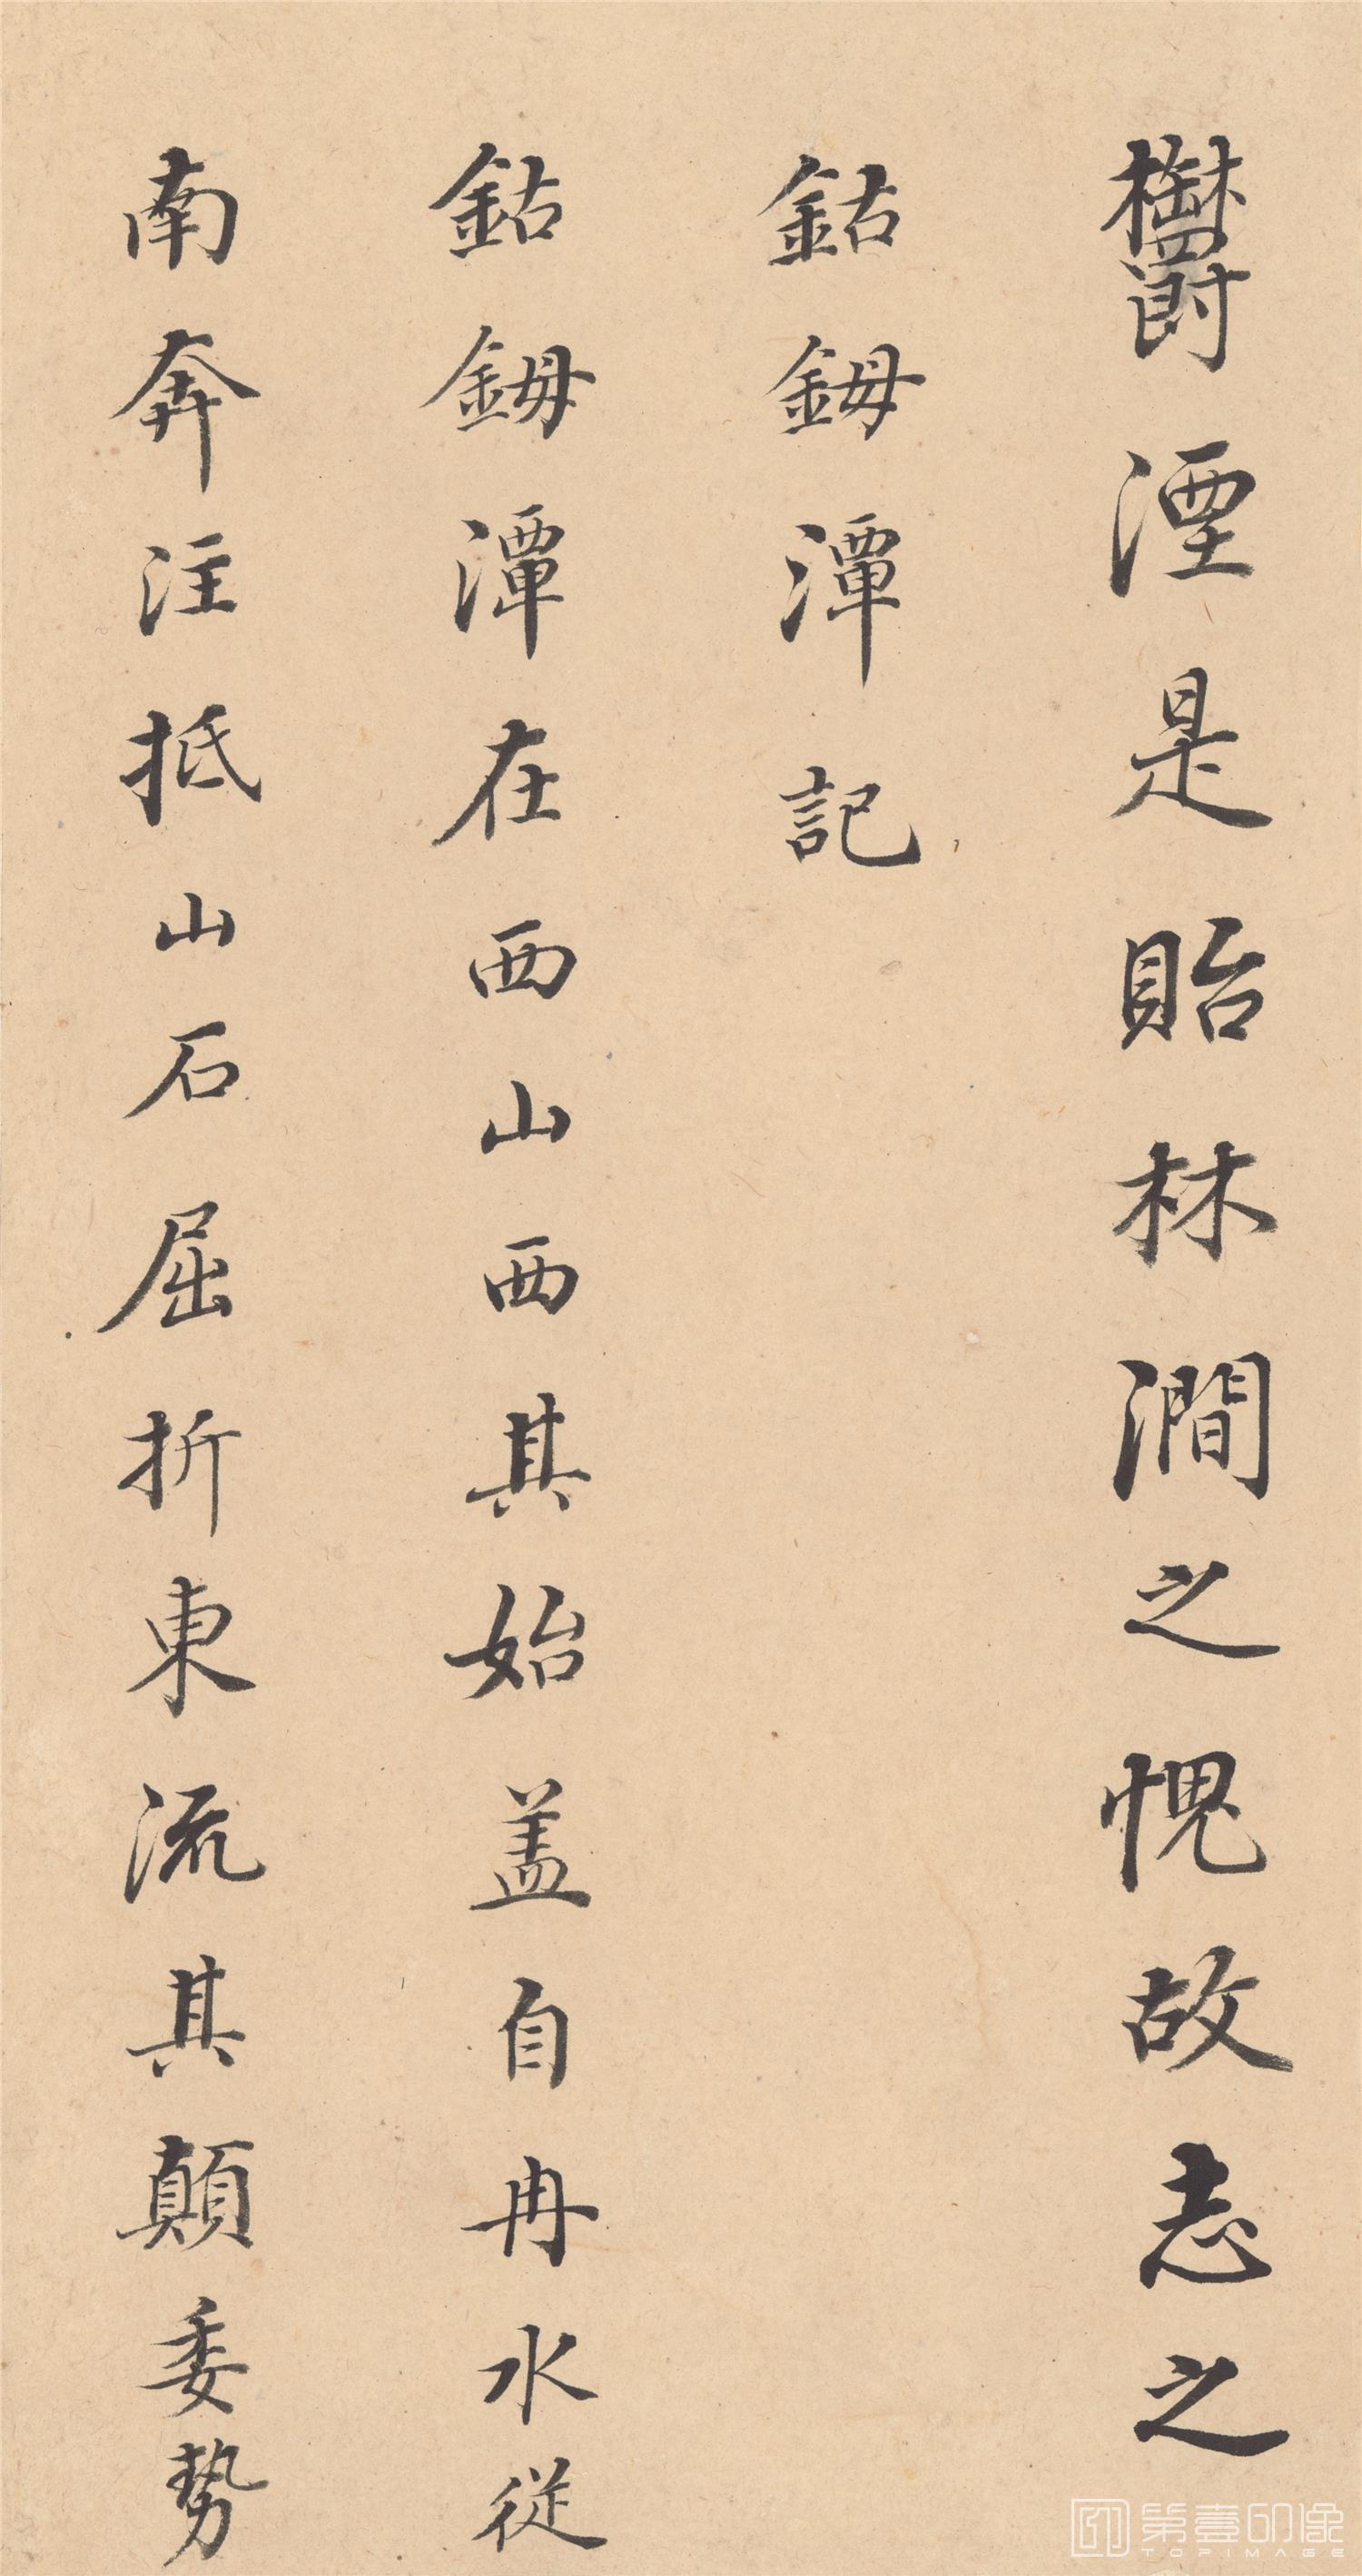 鬱湮是貽林澗之愧故志之
鈷鉧潭記
鈷鉧潭在西山西其始盖自冉水從
南奔注抵山石屈折東流其顛委勢
第壹印像
TOPIMAGE